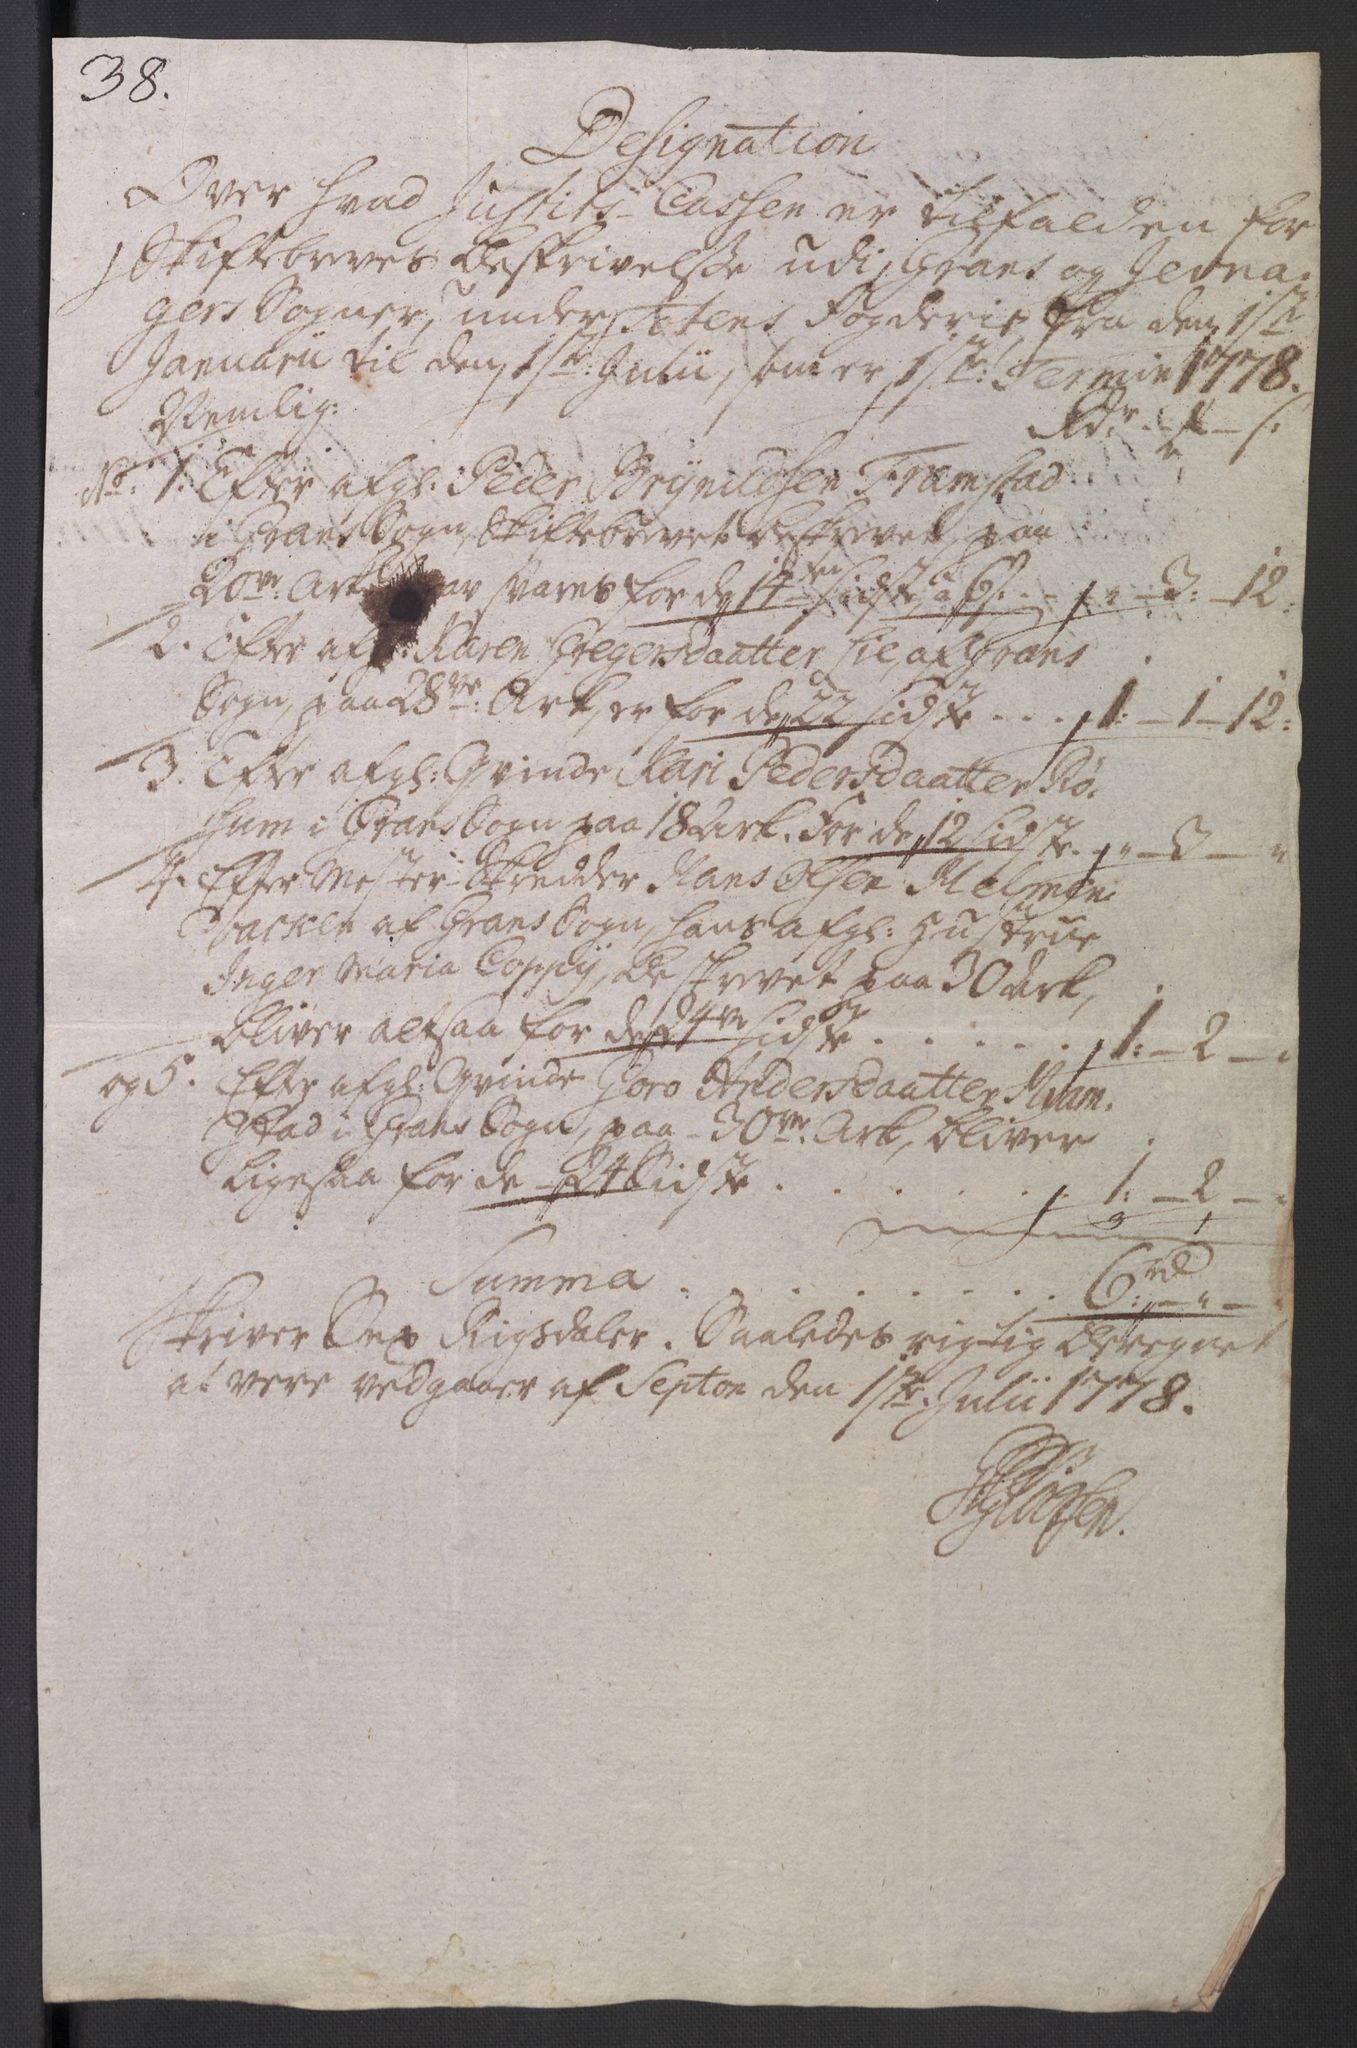 38.
Designation
Over hvad Justits-Cassen er tilfalden for
Skiftebreves Beskrivelse udi Grans og Jevna-
gers Sogner, under Totens Fogderie, fra den 1ste
Januarii til den 1ste Julii, som er 1ste Termin 1778.
Nemlig: Rdr - ß
No. 1. Efter afgl: Peder Brynildsen Framstad
i Grans Sogn, Skiftebrevet beskrevet paa
20ve Ark svares for de 14 sidste, a 6 ß. . - " - 3: - 12:
2. Efter afgl: Karen Gregersdaatter Lie af Grans
Sogn, paa 28ve Ark, er for de 22 sidste . . . 1: - 1 - 12:
3. Efter afgl: Qvinde Kari Pedersdaatter Rø-
hum i Grans Sogn paa 18 Ark. For de 12 sidste. - " - 3 - "
4. Efter Mester-Skredder Hans Olsen Melmen
Backen af Grans Sogn, hans afgl: Hustrue
Inger Maria Coppy, beskrevet paa 30 Ark,
bliver altsaa for de 24ve sidste . . . . . 1: - 2 - "
og 5. Efter afgl: Qvinde Goro Andersdaatter Kvam-
stad i Grans Sogn, paa 30ve Ark, bliver
ligesaa for de 24 Sidste . . . . . 1: - 2 - "
Summa . . . . . . . 6rd: - " - "
Skriver Sex Rigsdaler. Saaledes rigtig beregnet
at være vedgaaer af Septon den 1ste Julii 1778.